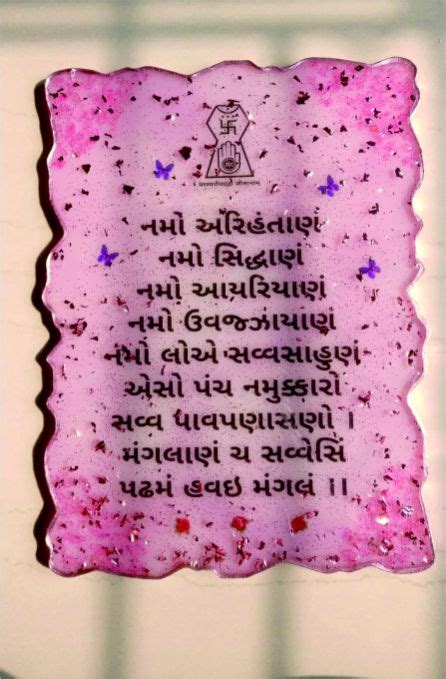 નમો અરિહંતાણં
નમો સિદ્ધાણં
નમો આયરિયાણં
નમો ઉવજ્ઝાયાણં
નમો લોએ સવ્વસાહુણં
એસો પંચ નમુક્કારો
સવ્વ પાવપણાસણો ।
મંગલાણં ચ સવ્વેસિં
પઢમં હવઇ મંગલં ।।